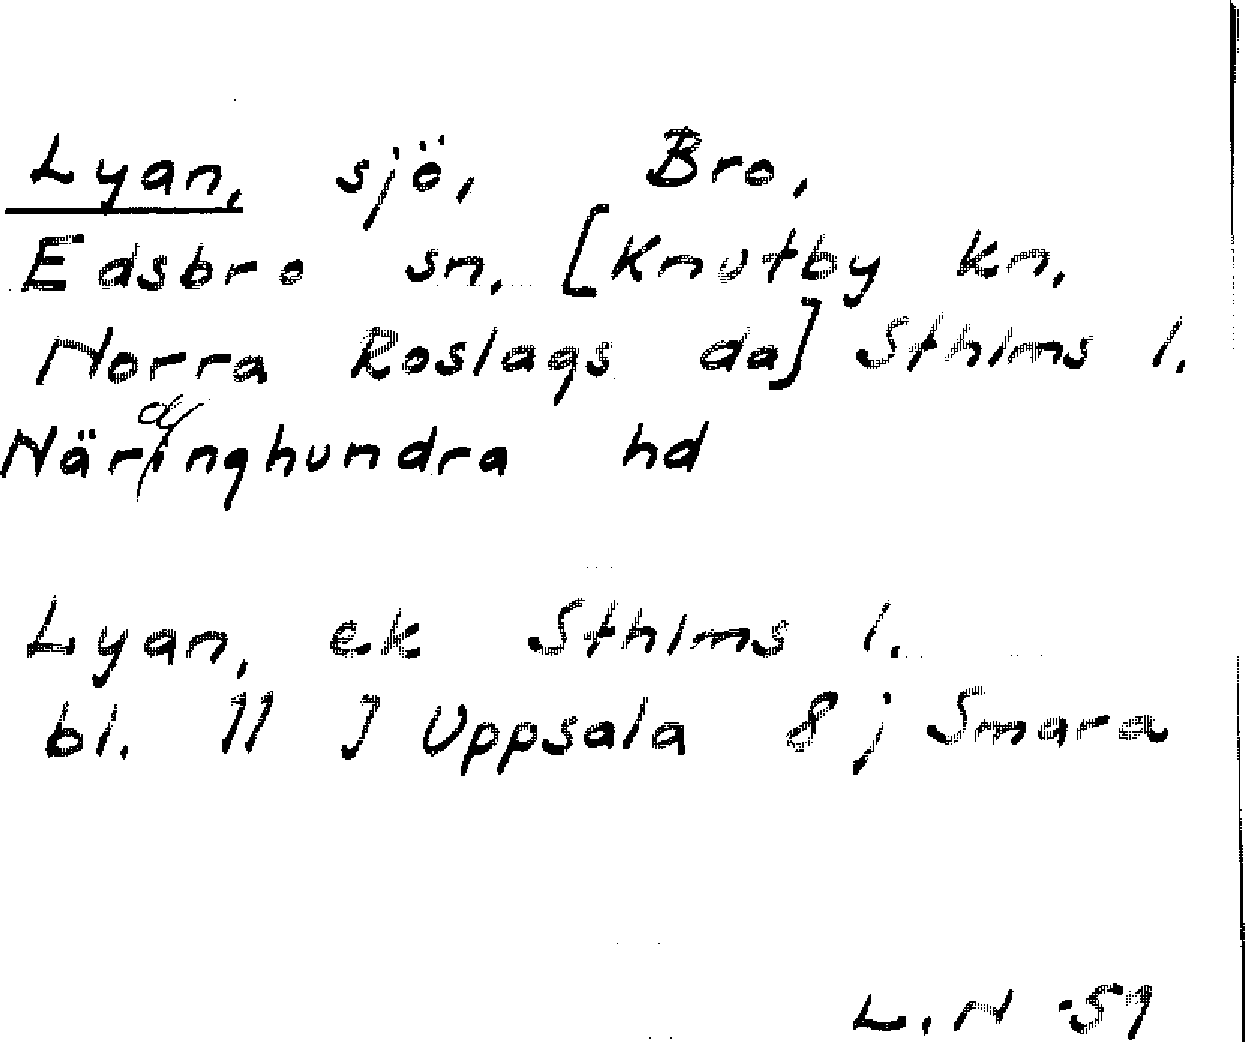 Lyan, sjö, Bro,
Edsbro sn. [Knutby kn.
Norra Roslags da] Sthlms l.
Närdinghundra hd
Lyan, ek Sthlms l.
bl. 11 J Uppsala 8 j Smara
L. N -59